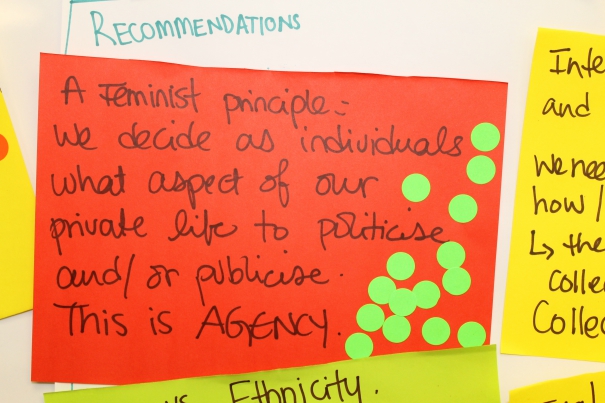 RECOMMENDATIONS
A Feminist principle:-
We decide as individuals
what aspect of our
private life to politicise
and/or publicise.
This is AGENCY.
Ethnicity.
and
We nee
how /
↳ the
Colle
Collec